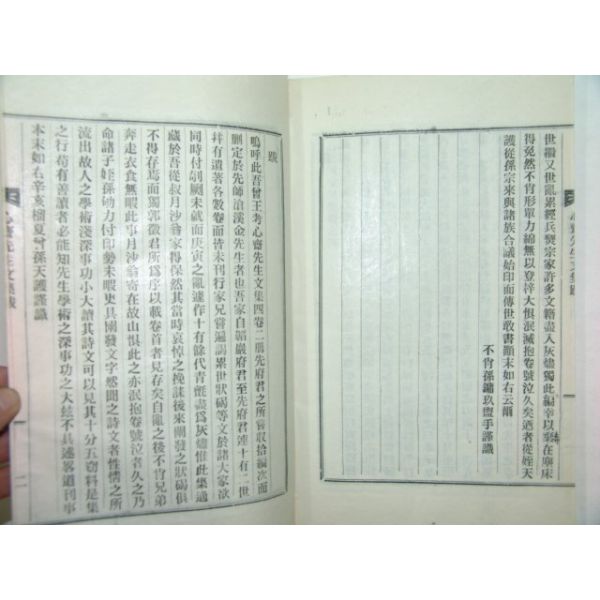 世禍又世亂累經兵燹宗家許多文籍盡入灰燼獨此編幸以藁在廢床
得免然不肖形單力綿無以登梓大恨泯滅抱卷號泣久矣迺者從姪天
護從孫宗來與諸族合議始印而傳世敢書顚末如右云爾
不肖孫鏞玖盥手謹識
心齋先生文集跋
跋
嗚呼此吾曾王考心齋先生文集四卷二冊先府君之所嘗收拾編次而
刪定於先師滄溪金先生者也吾家自韜巖府君至先府君連十有二世
幷有遺著各數卷而皆未刊行家兄嘗遍謁累世狀碣等文於諸大家欲
同時付剞劂未就而庚寅之亂遽作十有餘代靑氈盡爲灰燼惟此集過
藏於吾從叔月沙翁家得保然其當時哀悼之挽誄後來闡發之狀碣俱
不得存焉而獨郭徵君所爲序以載卷首者見存矣自亂之後不肖兄弟
奔走衣食無暇此事月沙翁寄在故山恨此之亦泯抱卷號泣者久之乃
命諸子姪孫劬力付印勢未暇更具闡發文字然聞之詩文者性情之所
流出故人之學術淺深事功小大讀其詩文可以見其十分五窃料是集
之行苟有善讀者必能知先生學術之深事功之大玆不具述畧道刊事
本末如右辛亥榴夏曾孫天護謹識
心齋先生文集跋
二